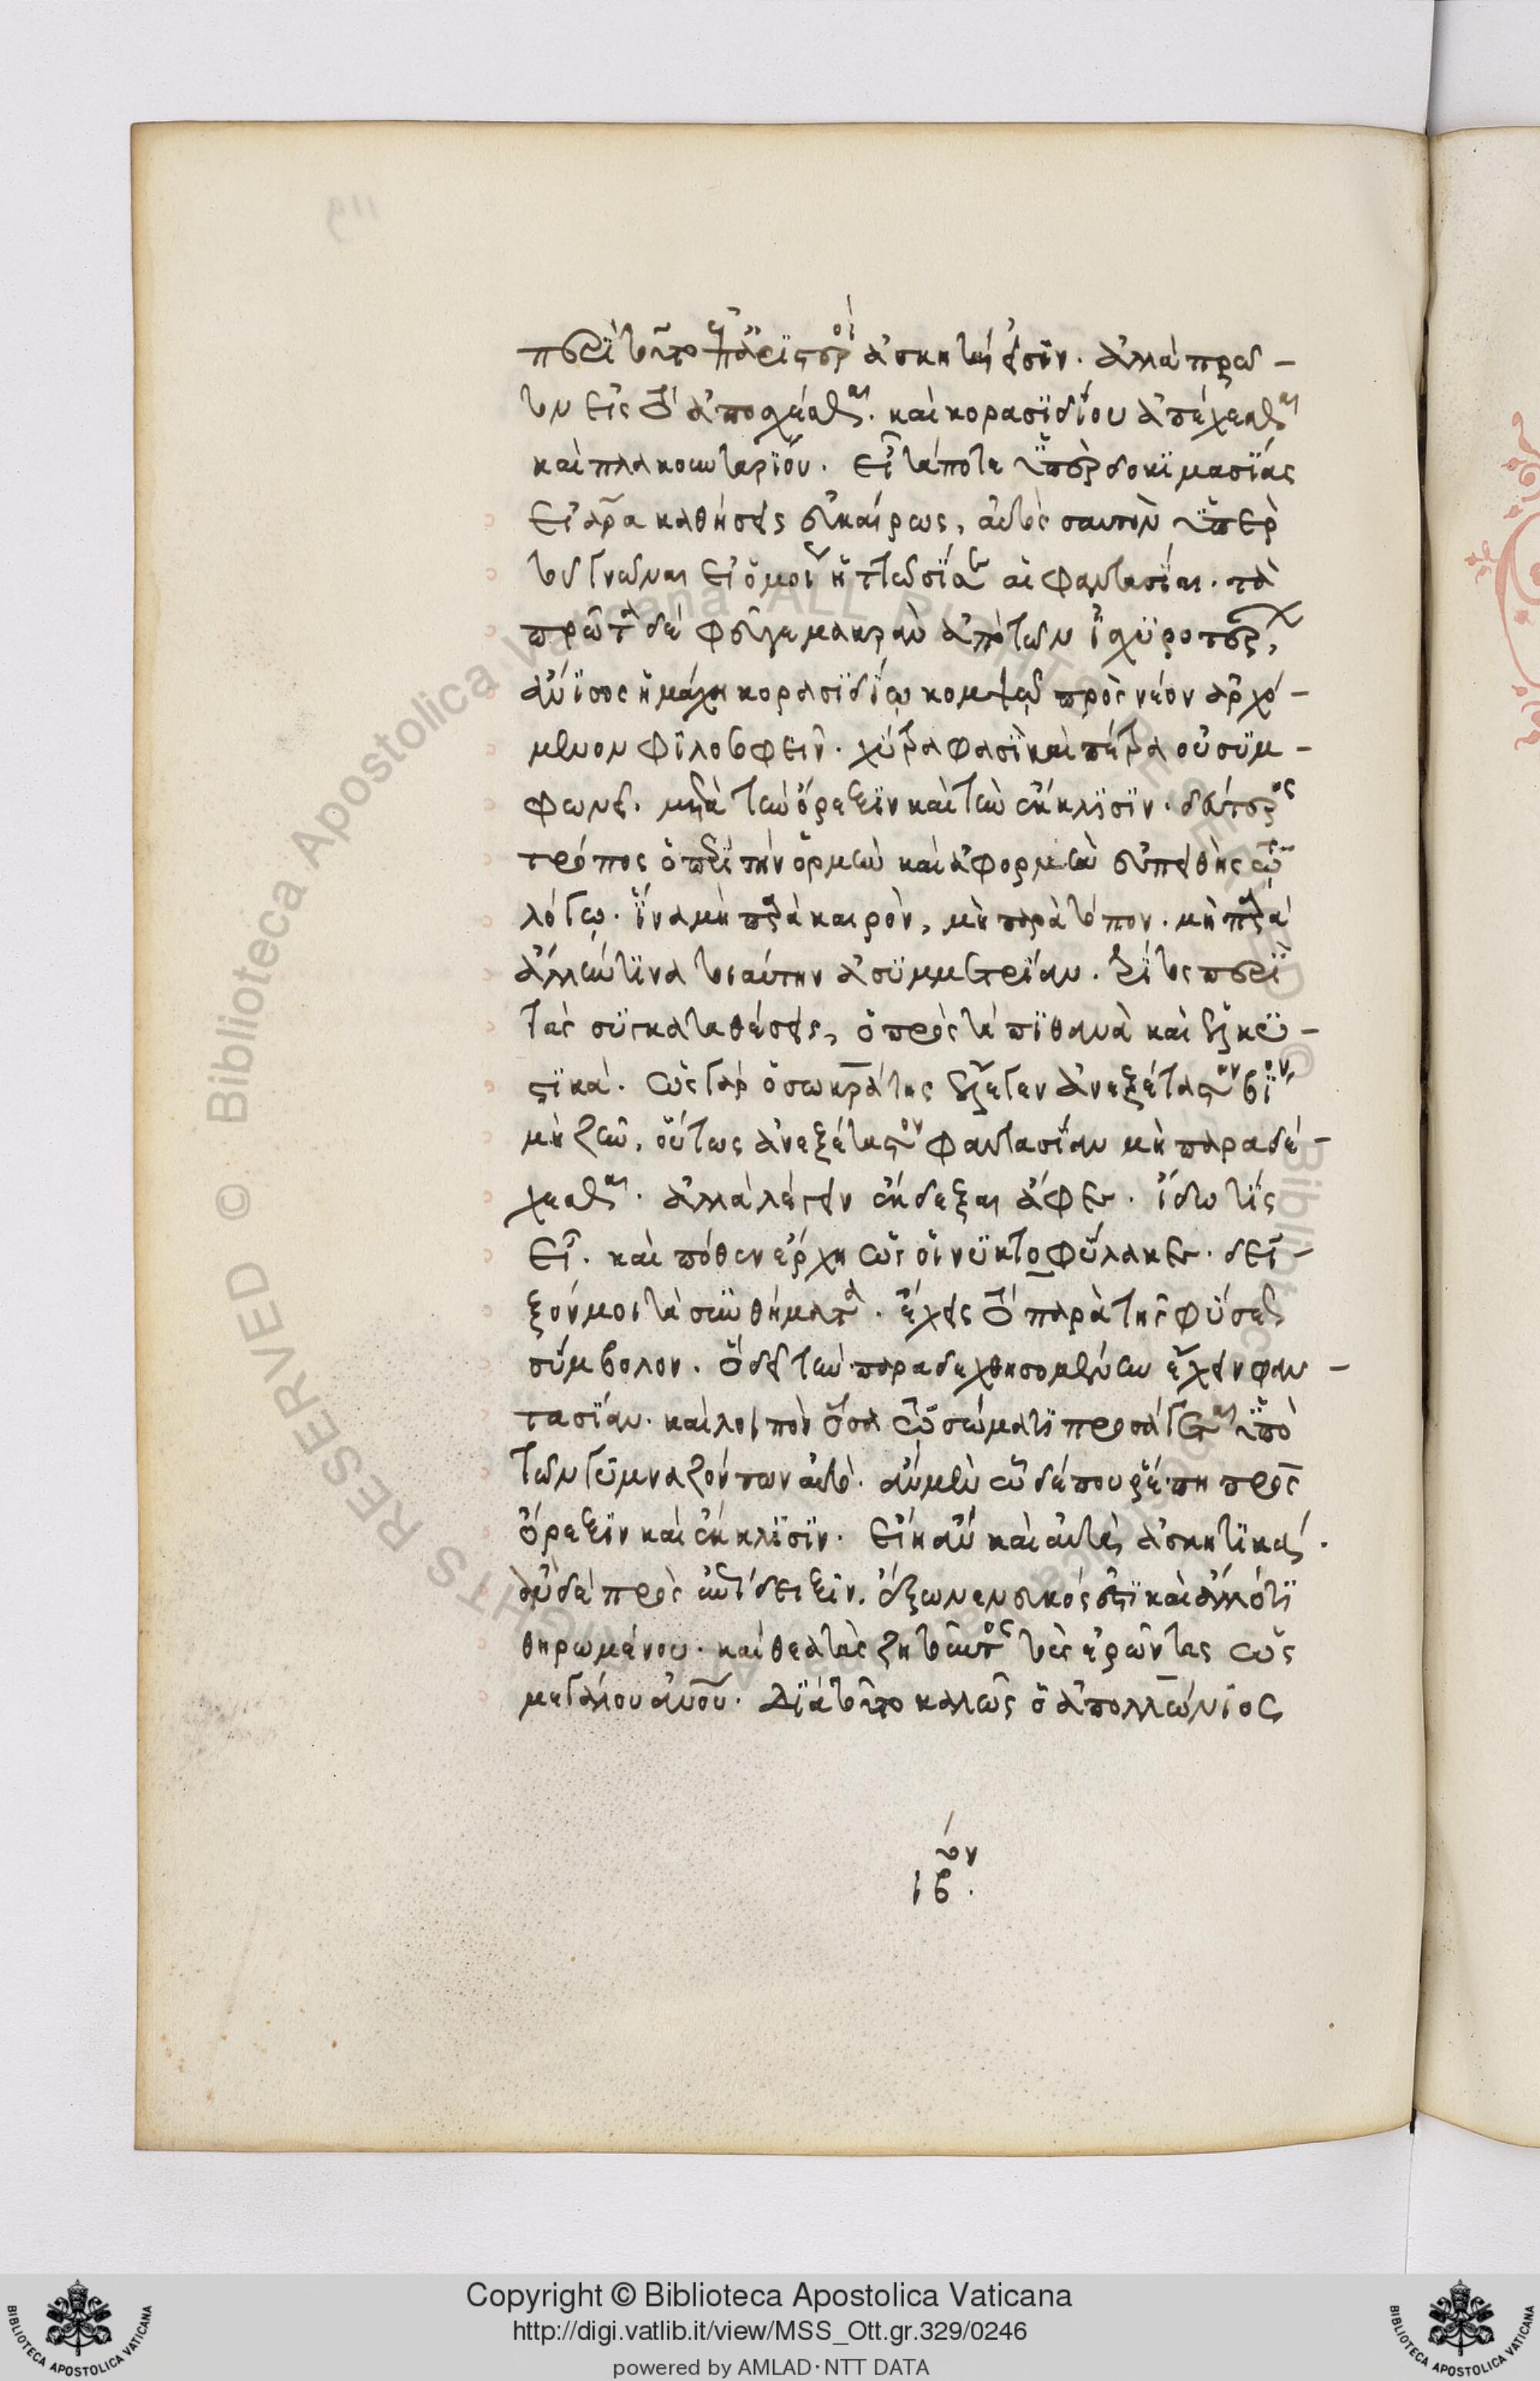 περὶ τοῦτο περισσότεροι ἀσκηταὶ εἰσιν. ἀλλὰ πρῶ-
τον εἰς τὸ ἀποσχέσθαι. καὶ κορασιδίου ἀπέχεσθαι
καὶ πλακουνταρίου. εἶτά ποτε ὑπὲρ δοκιμασίας
εἰ ἄρα καθήσεις εὐκαίρως, αὐτὸς σαυτὸν ὑπὲρ
τοῦ γνῶναι εἰ ὁμοίως ἡττῶσί σε αἱ φαντασίαι. τὰ
πρῶτα δὲ φεῦγε μακρὰν ἀπὸ τῶν ἰσχυροτέρων,
ἄνισος ἡ μάχη κορασιδίῳ κομψῷ πρὸς νέον ἀρχό-
μενον φιλοσοφεῖν. χύτρα φασὶ καὶ πέτρα οὐ συμ-
φωνεῖ. μετὰ τὴν ὄρεξιν καὶ τὴν ἔκκλισιν. δεύτερος
τρόπος ὁ περὶ τὴν ὁρμὴν καὶ ἀφορμὴν εὐπειθὴς τῷ
λόγῳ. ἵνα μὴ παρὰ καιρὸν, μὴ παρὰ τόπον. μὴ παρὰ
ἄλλην τινὰ τοιαύτην ἀσυμμετρίαν. τρίτος περὶ
τὰς συγκαταθέσεις, ὁ πρὸς τὰ πιθανὰ καὶ ἑλκυ-
στικά. ὡς γὰρ ὁ σωκράτης ἔλεγεν ἀνεξέταστον βίον
μὴ ζῆν, οὕτως ἀνεξέταστον φαντασίαν μὴ παραδέ-
χεσθαι. ἀλλὰ λέγειν ἔκδεξαι ἄφες. ἴδω τίς
εἶ. καὶ πόθεν ἔρχῃ ὡς οἱ νυκτοφύλακες. δεῖ-
ξόν μοι τὰ συνθήματα. ἔχεις τὸ παρὰ τῆς φύσεως
σύμβολον. ὃ δεῖ τὴν παραδεχθησομένην ἔχειν φαν-
τασίαν. καὶ λοιπὸν ὅσα τῷ σώματι προσάγεται ὑπὸ
τῶν γυμναζόντων αὐτὸ. ἂν μὲν ὧδέ που ῥέπῃ πρὸς
ὄρεξιν καὶ ἔκκλισιν. εἴη ἂν καὶ αὐτὰ ἀσκητικά.
ἂν δὲ πρὸς ἐπίδειξιν. ἔξω νενευκότος ἐστὶ καὶ ἄλλό τι
θηρωμένου. καὶ θεατὰς ζητοῦντος τοὺς ἐροῦντας ὢ
μεγάλου ἀνθρώπου. Διὰ τοῦτο καλῶς ὁ ἀπολλώνιος
ιβον.
Copyright © Biblioteca Apostolica Vaticana
http://digi.vatlib.it/view/MSS_Ott.gr.329/0246
powered by AMLAD·NTT DATA